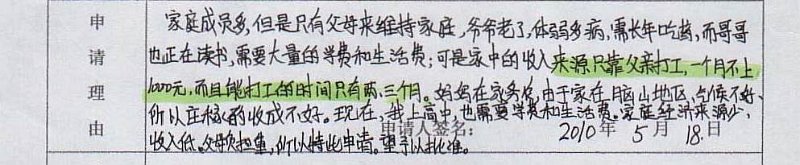 申请理由
家庭成员多,但是只有父母来维持家庭,爷爷老了,体弱多病,需长年吃药,而哥哥
也正在读书,需要大量的学费和生活费;可是家中的收入来源只靠父亲打工,一个月不上
1000元,而且能打工的时间只有两,三个月。妈妈在家务农,由于家在脑山地区,气候不好,
所以庄稼的收成不好。现在,我上高中,也需要学费和生活费。家庭经济来源少,
收入低。父母欠担重,所以特此申请。望予以批准。
申请人签名:
2010年5月18日